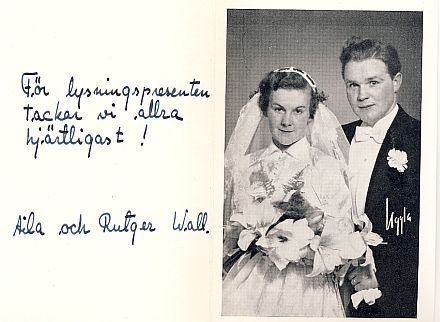 För lysningspresenten
tackar vi allra
hjärtligast !
Aila och Rutger Wall.
Uggla